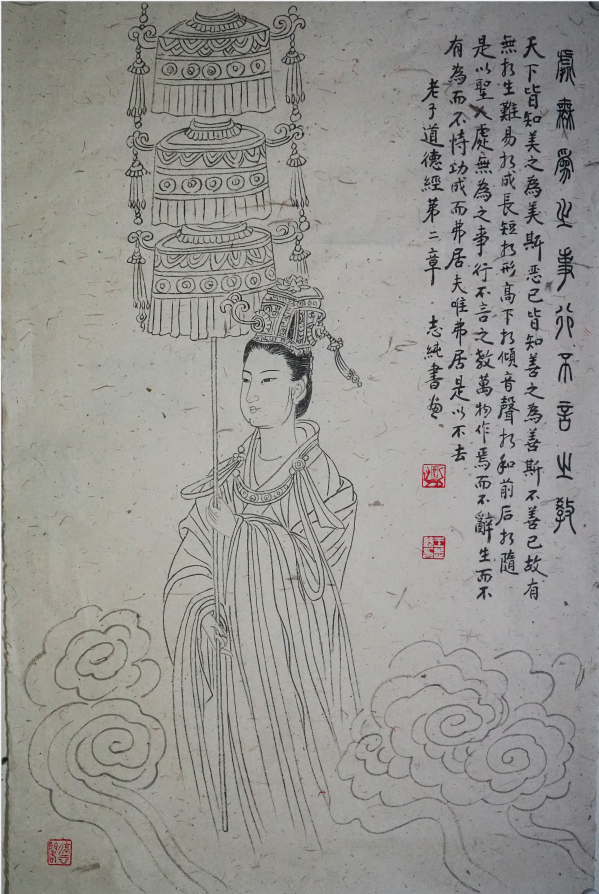 處無為之事行不言之教
天下皆知美之為美斯惡已皆知善之為善斯不善已故有
無相生難易相成長短相形高下相傾音聲相和前后相隨
是以聖人處無為之事行不言之教萬物作焉而不辭生而不
有為而不恃功成而弗居夫唯弗居是以不去
老子道德經第二章 志純書画